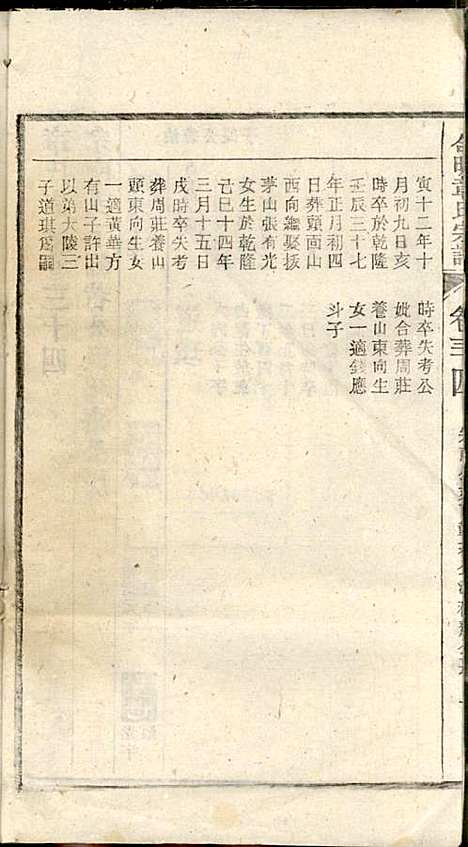 寅十二年十
月初九日亥
時卒於乾隆
壬辰三十七
年正月初四
日葬頭啇山
西向繼娶拔
茅山張有光
女生於乾隆
己巳十四年
三月十五日
戌時卒失考
葬周莊養山
頭東向生女
一適黃華方
有山子許出
以弟大陵三
子道琪爲嗣
時卒失考公
妣合葬周莊
養山東向生
女一適錢應
斗子
氏宗譜
卷三